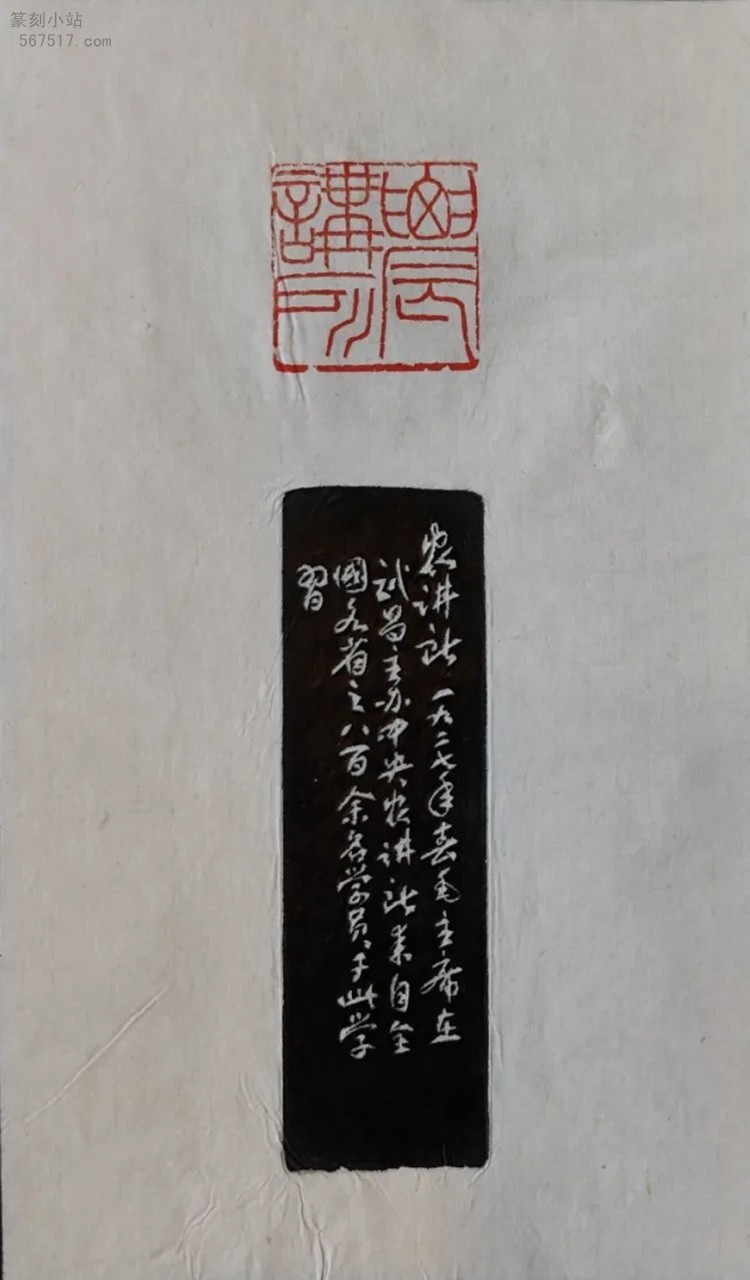 篆刻小站
567517.com
農
講所
农讲所 一九二七年春毛主席在
武昌主办中央农讲所来自全
國各省之八百余名学员于此学
習